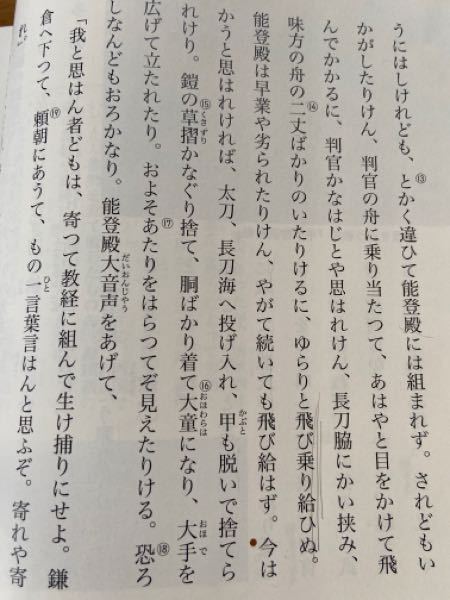 うにはしけれども、⑬とかく違ひて能登殿には組まれず。されどもい
かがしたりけん、判官の舟に乗り当たつて、あはやと目をかけて飛
んでかかるに、判官かなはじとや思はれけん、長刀脇にかい挟み、
味方の舟の⑭二丈ばかりのいたりけるに、ゆらりと飛び乗り給ひぬ。
能登殿は早業や劣られたりけん、やがて続いても飛び給はず。今は
かうと思はれければ、太刀、長刀海へ投げ入れ、甲も脱いで捨てら
れけり。鎧の⑮草摺かなぐり捨て、胴ばかり着て⑯大童になり、大手を
広げて立たれたり。およそ⑰あたりをはらつてぞ見えたりける。⑱恐ろ
しなんどもおろかなり。能登殿大音声をあげて、
「我と思はん者どもは、寄つて教経に組んで生け捕りにせよ。鎌
倉へ下つて、⑲頼朝にあうて、もの一言葉言はんと思ふぞ。寄れや寄
れ。」